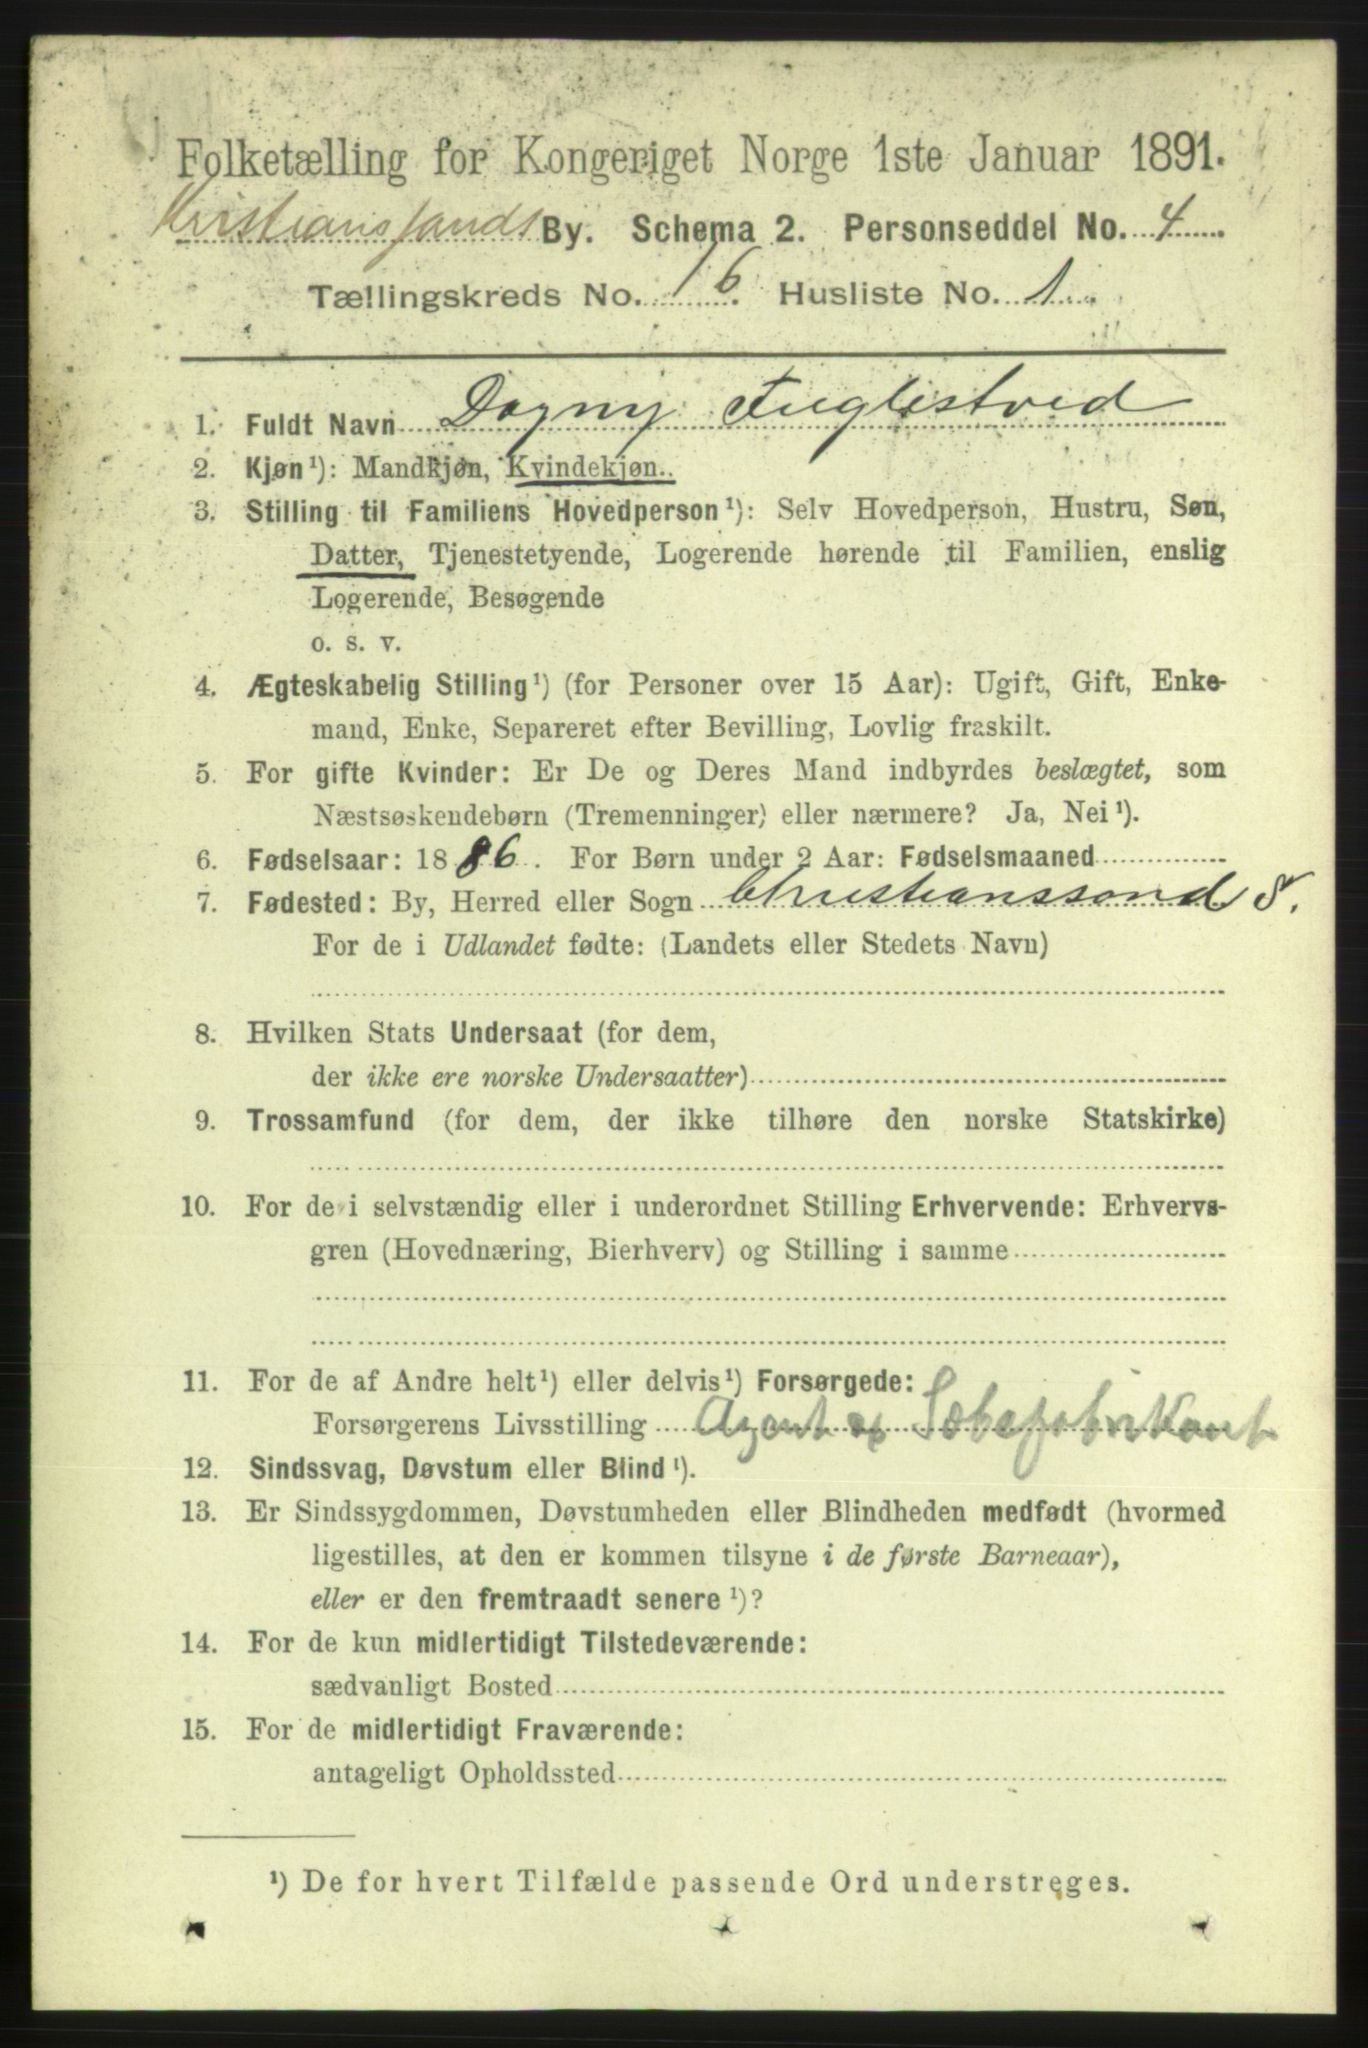 Folketælling for Kongeriget Norge 1ste Januar 1891.
Kristianssands By. Schema 2. Personseddel No. 4
Tællingskreds No. 16. Husliste No. 1
1. Fuldt Navn Dagny Fuglestved
2. Kjøn¹): Mandkjøn, Kvindekjøn..
3. Stilling til Familiens Hovedperson¹): Selv Hovedperson, Hustru, Søn,
Datter, Tjenestetyende, Logerende hørende til Familien, enslig
Logerende, Besøgende
o. s. v.
4. Ægteskabelig Stilling¹) (for Personer over 15 Aar): Ugift, Gift, Enke-
mand, Enke, Separeret efter Bevilling, Lovlig fraskilt.
5. For gifte Kvinder: Er De og Deres Mand indbyrdes beslægtet, som
Næstsøskendebørn (Tremenninger) eller nærmere? Ja, Nei¹).
6. Fødselsaar: 1886. For Børn under 2 Aar: Fødselsmaaned
7. Fødested: By, Herred eller Sogn Christianssand S.
For de i Udlandet fødte: (Landets eller Stedets Navn)
8. Hvilken Stats Undersaat (for dem,
der ikke ere norske Undersaatter)
9. Trossamfund (for dem, der ikke tilhøre den norske Statskirke)
10. For de i selvstændig eller i underordnet Stilling Erhvervende: Erhvervs-
gren (Hovednæring, Bierhverv) og Stilling i samme
11. For de af Andre helt¹) eller delvis¹) Forsørgede:
Forsørgerens Livsstilling Agent og Sæbefabrikant
12. Sindssvag, Døvstum eller Blind¹).
13. Er Sindssygdommen, Døvstumheden eller Blindheden medfødt (hvormed
ligestilles, at den er kommen tilsyne i de første Barneaar),
eller er den fremtraadt senere¹)?
14. For de kun midlertidigt Tilstedeværende:
sædvanligt Bosted
15. For de midlertidigt Fraværende:
antageligt Opholdssted
¹) De for hvert Tilfælde passende Ord understreges.